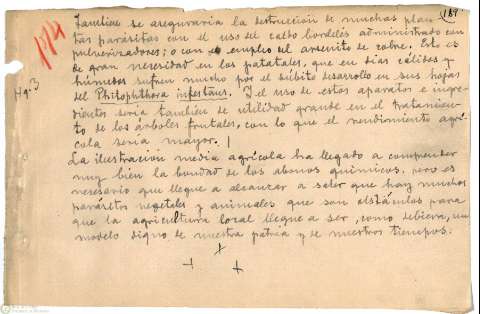 189
Tambien se aseguraria la destrucción de muchas plan-
tas parásitas con el uso del caldo bordelés administrado con
pulverizadores; o con empleo del arsenito de cobre. Esto es
de gran necesidad en los patatales, que en dias cálidos y
húmedos sufren mucho por el súbito desarrollo en sus hojas
del Phitophthora infestans. Y el uso de estos aparatos e ingre-
dientes seria tambien de utilidad grande en el tratamien-
to de los árboles frutales, con lo que el rendimiento agrí-
cola seria mayor.
La ilustración media agrícola ha llegado a comprender
muy bien la bondad de los abonos químicos, pero es
necesario que llegue a alcanzar a saber que hay muchos
parásitos vegetales y animales que son obstáculos para
que la agricultura local llegue a ser, como debiera, un
modelo digno de nuestra patria y de nuestros tiempos.